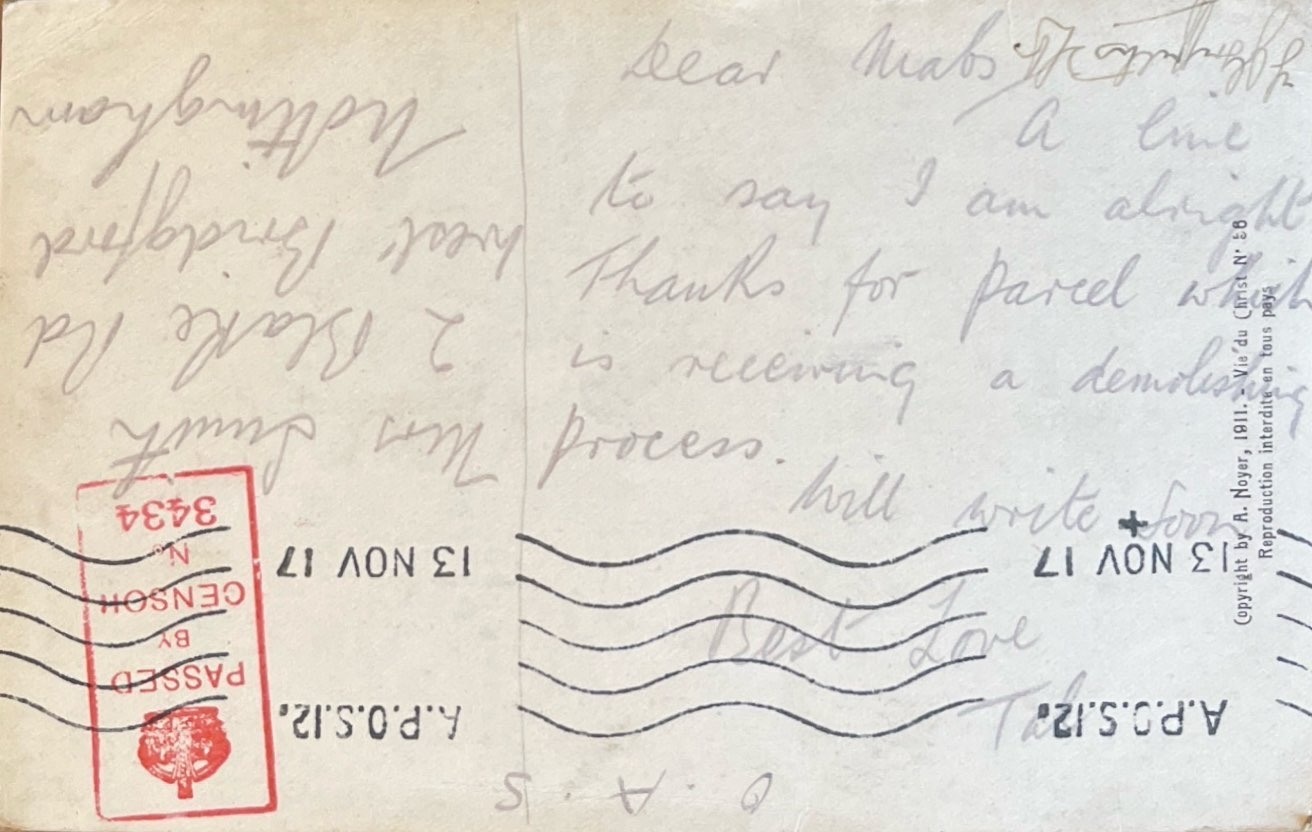 Dear Mabs
A line
to say I am alright
Thanks for parcel which
is receiving a demolishing
process.
Will write soon
Best Love
O.A.S
A.P.O.S.12.
13 NOV 17
A.P.O.S.12.
13 NOV 17
PASSED
BY
CENSOR
No
3434
Mrs Smith
2 Blake Rd
West Bridgford
Nottingham
Copyright by A. Noyer, 1911. - Vie du Christ
Reproduction interdite en tous pays